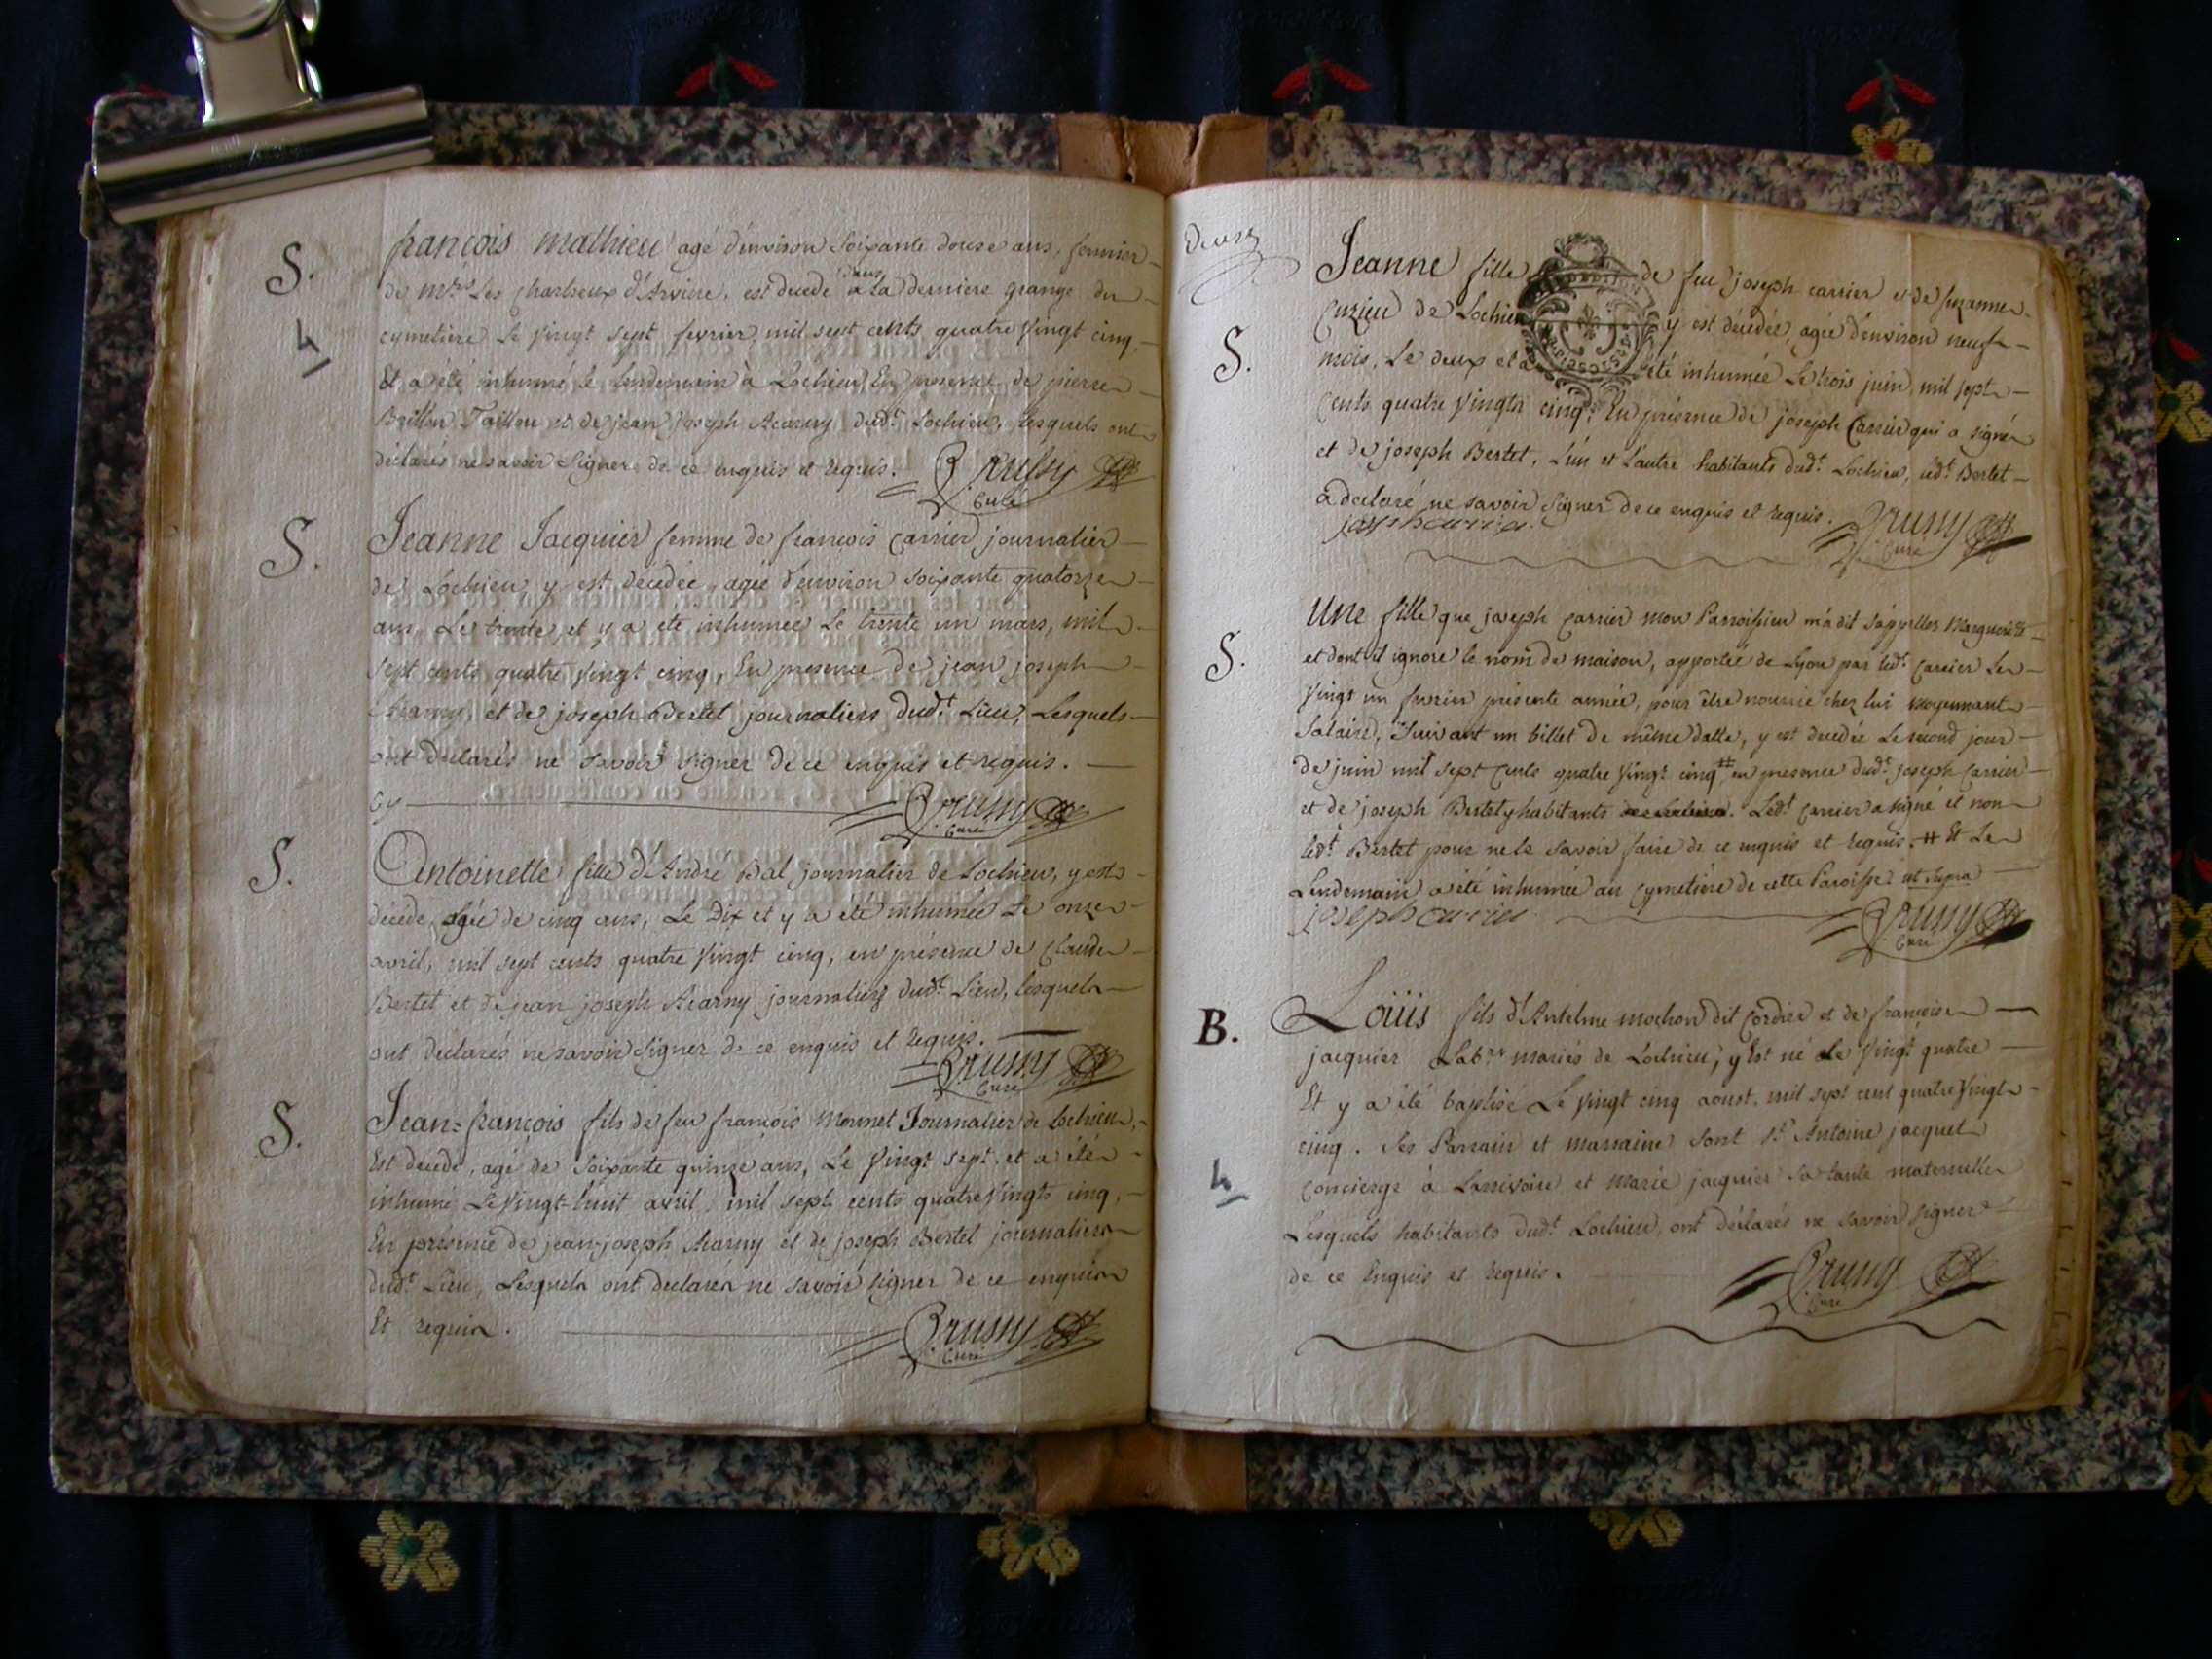 S.
françois mathieu agé d'environ Soixante douze ans, fermier
de Mrs Les Chartreux d'Arviere, est decedé dans la derniere grange du
4
cymetiere Le vingt sept fevrier mil sept cents quatre vingt cinq,
Et a été inhumé le lendemain à Lochieu, En presence de pierre
Tailleur et de jean joseph Acarny dud.t Lochieu, lesquels ont
déclarés ne savoir signer de ce enquis et requis. Brussy
Curé
S.
Jeanne Jacquier femme de françois Carrier journalier
de Lochieu, y est décédée, agée d'environ soixante quatorze
ans, Le trente, et y a eté inhumée Le trente un mars, mil
sept cents quatre vingt cinq, En presence de jean joseph
Acarny, et de joseph Bertet journaliers dud.t Lieu, Lesquels
ont declarés ne savoir signer de ce enquis et requis.
Cy Brussy
Curé
S.
Antoinette fille d'André Bal journalier de Lochieu, y est
décedé, agée de cinq ans, Le Dix et y a été inhumée Le onze
avril, mil sept cents quatre vingt cinq, en présence de Claude
Bertet et de jean joseph Acarny journaliers dud.t Lieu, lesquels
ont declarés ne savoir signer de ce enquis et requis.
Brussy
Curé
S.
Jean=françois fils de feu françois Monnet Journalier de Lochieu,
Est decedé, agé de soixante quinze ans, Le vingt sept, et a été
inhumé Le vingt-huit avril, mil sept cents quatre vingts cinq,
En présence de jean-joseph Acarny et de joseph Bertet journaliers
dud.t Lieu, Lesquels ont declarés ne savoir signer de ce enquis
Et requis.
Brussy
Curé
Deux
Jeanne fille de feu joseph carrier et de suzanne
Cuzieu de Lochieu y est décédée, agée d'environ neuf
S.
mois, Le deux et a été inhumée Le trois juin, mil sept
Cents quatre vingts cinq, En présence de joseph Carrier qui a signé
et de joseph Bertet, L'un et L'autre habitants dud.t Lochieu, led.t Bertet
a declaré ne savoir signer de ce enquis et requis.
joseph carrier Brussy
Curé
Une fille que joseph Carrier mon Parroissien m'a dit s'appeller Marguerite
S.
et dont il ignore le nom de maison, apportée de Lyon par led.t Carrier Le
vingt un fevrier présente année, pour être nourrie chez lui moyennant
Salaire, Suivant un billet de même datte, y est decedée Le second jour
de juin mil sept cents quatre vingt cinq # en presence dud.t joseph Carrier
et de joseph Bertet y habitants. Led.t Carrier a signé et non
led.t Bertet pour ne le savoir faire de ce enquis et requis. # Et Le
Lendemain a été inhumée au Cymetière de cette Paroisse ut supra
joseph carrier Brussy
Curé
B.
Loüis fils d'Antelme mochon dit Cordier et de françoise
jacquier Lab.rs mariés de Lochieu, y est né Le vingt quatre
Et y a été baptisé Le vingt cinq aoust, mil sept cent quatre vingt
cinq. Ses Parrain et marraine sont s.r Antoine jacquet
4
Concierge à Larrivoire et Marie jacquier sa tante maternelle
Lesquels habitants dud.t Lochieu, ont déclarés ne savoir signer
de ce Enquis et requis.
Brussy
Curé